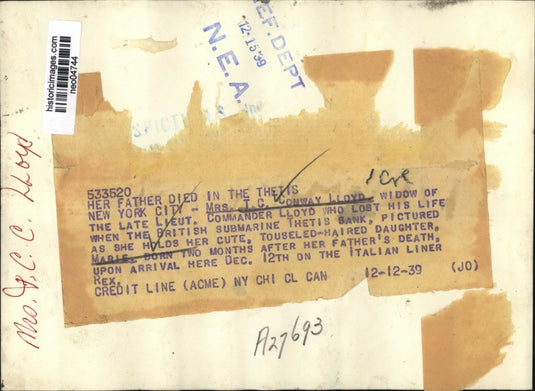 historicimages.com
neo04744
REF. DEPT
12-15-39
N.E.A.
Mrs. T. C. C. Lloyd
1 Col
533520
HER FATHER DIED IN THE THETIS
NEW YORK CITY - MRS. T. C. CONWAY LLOYD, WIDOW OF
THE LATE LIEUT. COMMANDER LLOYD WHO LOST HIS LIFE
WHEN THE BRITISH SUBMARINE THETIS SANK, PICTURED
AS SHE HOLDS HER CUTE, TOUSELED-HAIRED DAUGHTER,
MARIE, BORN TWO MONTHS AFTER HER FATHER'S DEATH,
UPON ARRIVAL HERE DEC. 12TH ON THE ITALIAN LINER
REX.
CREDIT LINE (ACME) NY CHI CL CAN 12-12-39 (JO)
A27693